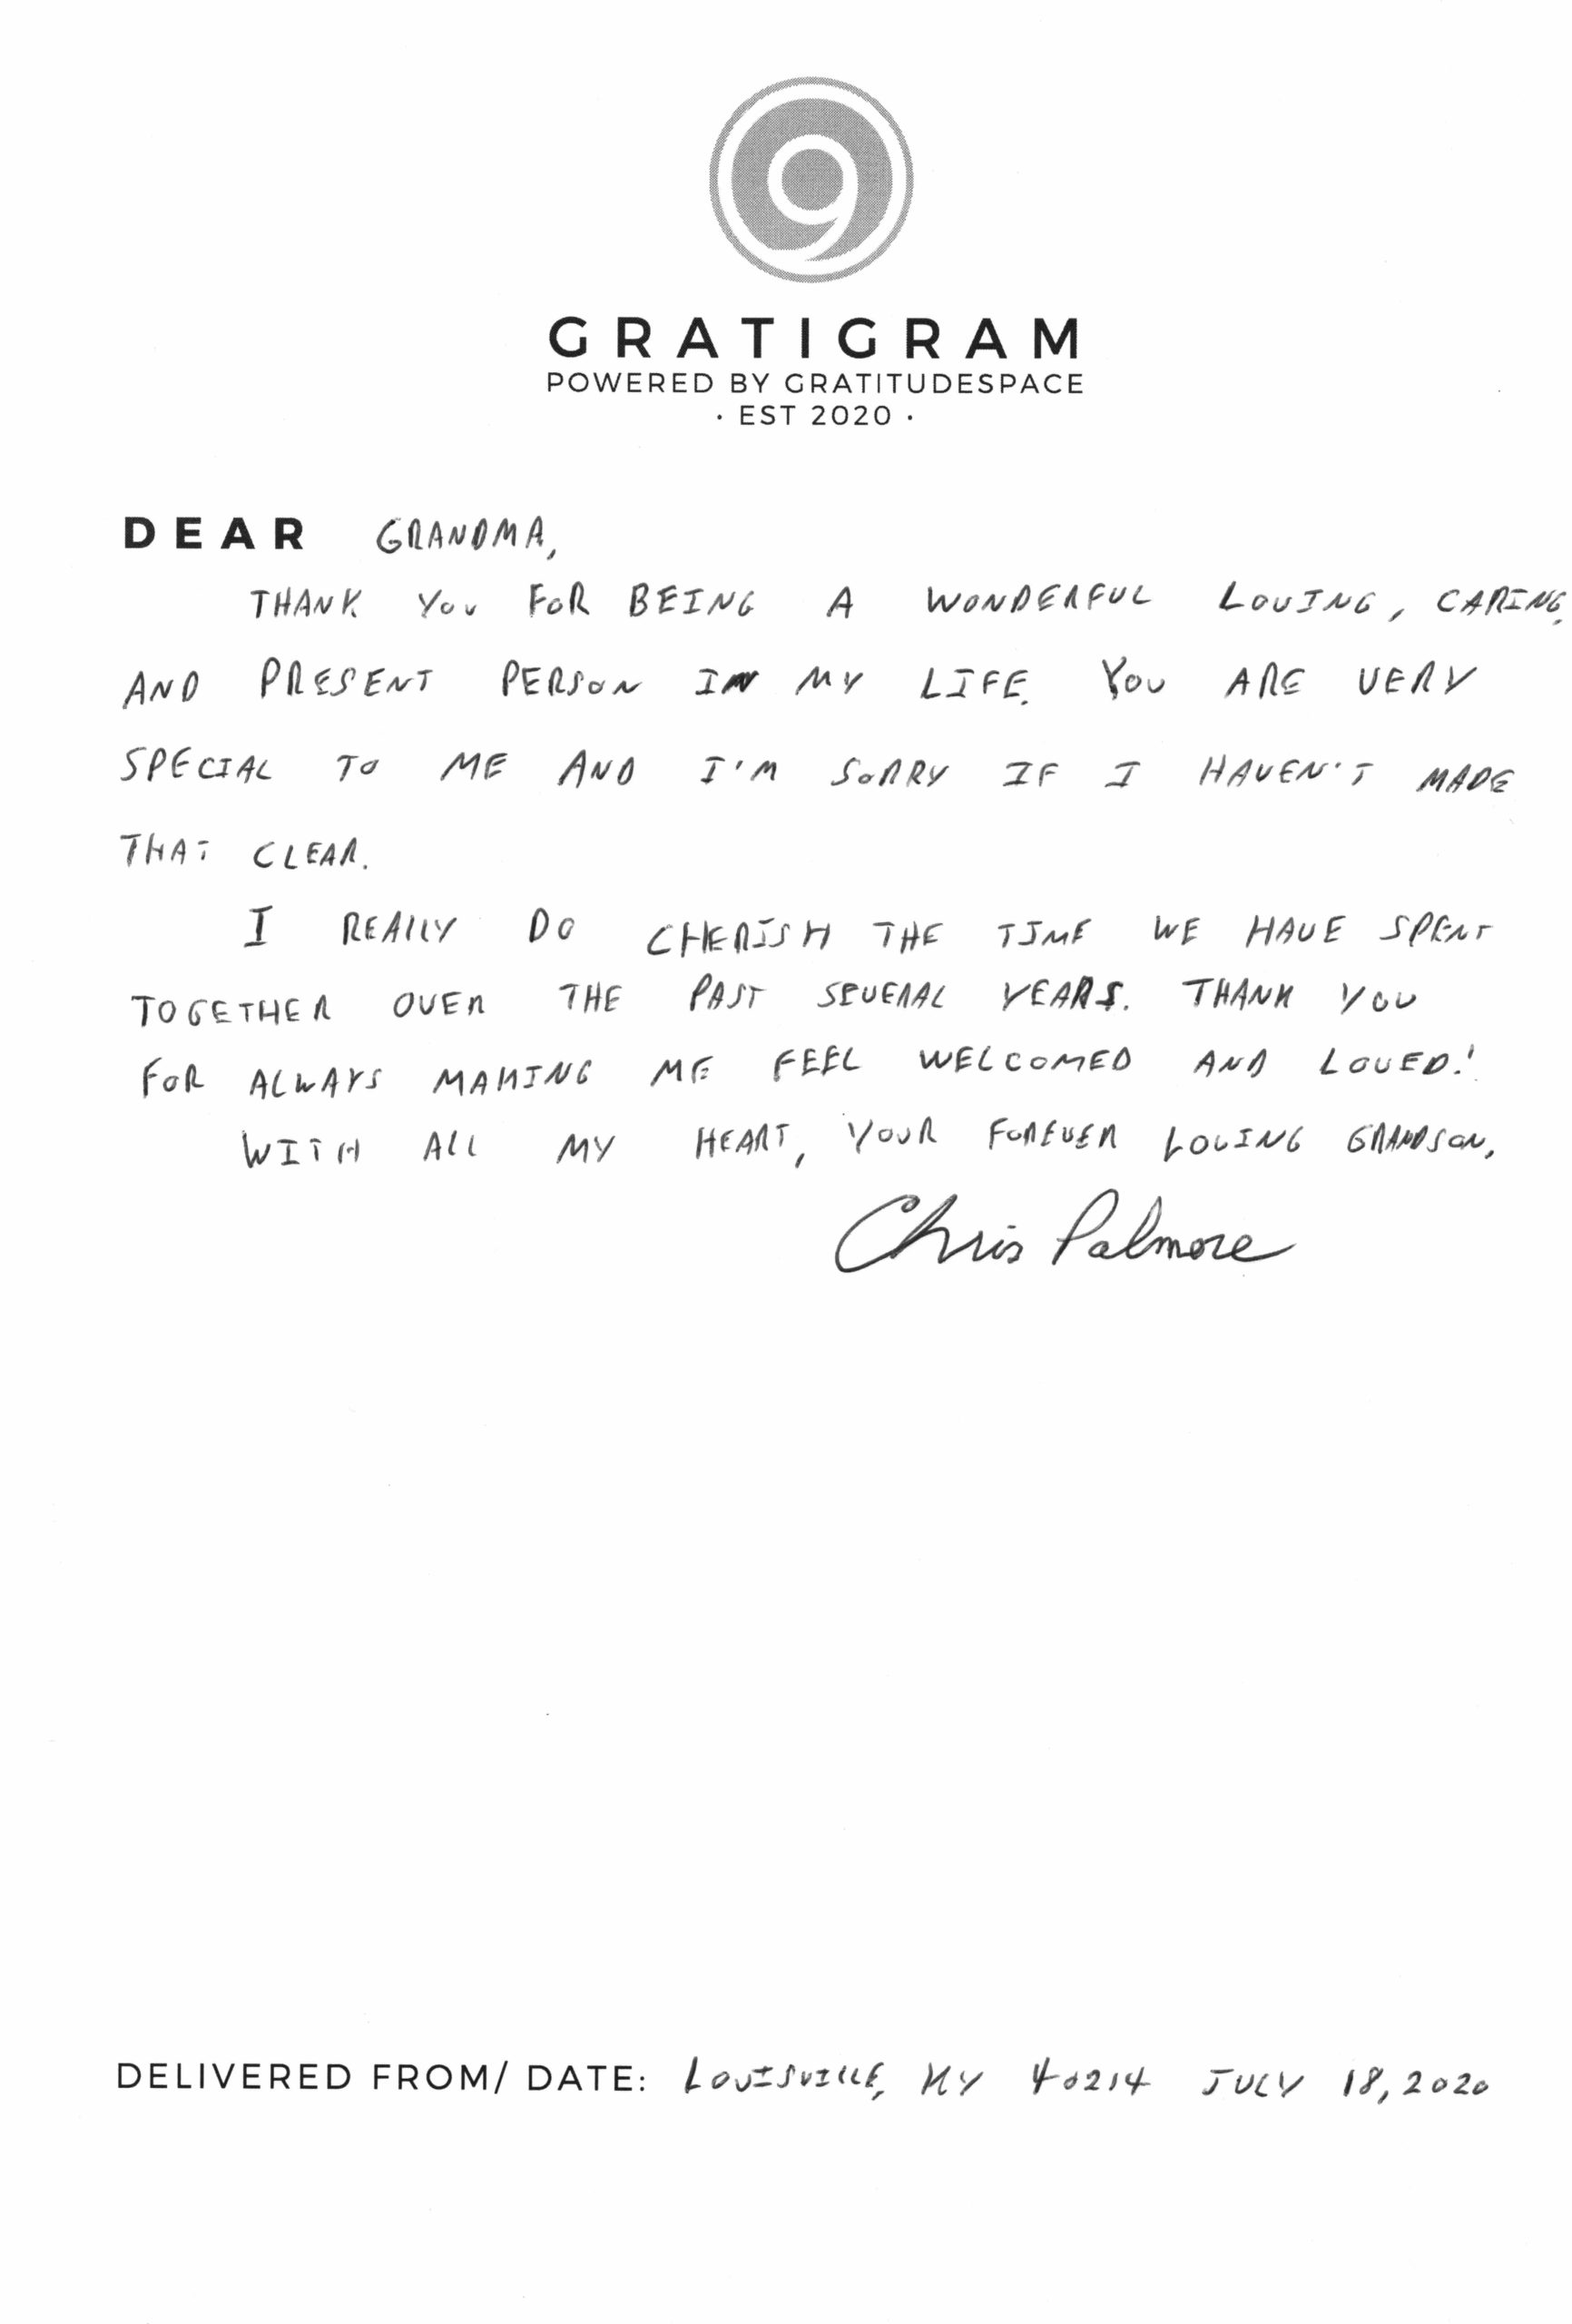 GRATIGRAM
POWERED BY GRATITUDESPACE
· EST 2020 ·
DEAR GRANDMA,
THANK YOU FOR BEING A WONDERFUL LOVING, CARING,
AND PRESENT PERSON IN MY LIFE. YOU ARE VERY
SPECIAL TO ME AND I'M SORRY IF I HAVEN'T MADE
THAT CLEAR.
I REALLY DO CHERISH THE TIME WE HAVE SPENT
TOGETHER OVER THE PAST SEVERAL YEARS. THANK YOU
FOR ALWAYS MAKING ME FEEL WELCOMED AND LOVED!
WITH ALL MY HEART, YOUR FOREVER LOVING GRANDSON,
Chris Palmore
DELIVERED FROM/ DATE: LOUISVILLE, KY 40214 JULY 18, 2020